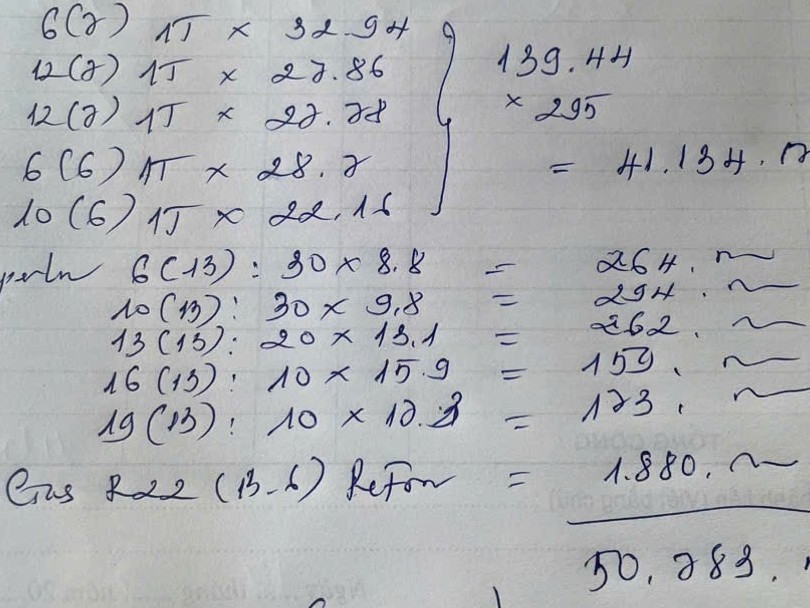 6(7) 1T × 32.94
12(7) 1T × 27.86
12(7) 1T × 27.78
6(6) 1T × 28.7
10(6) 1T × 22.16
139.44
× 295
= 41.134.
6(13) : 30 × 8.8 = 264. ~
10(13) : 30 × 9,8 = 294. ~
13(13) : 20 × 13.1 = 262. ~
16(13) : 10 × 15.9 = 159. ~
19(13) : 10 × 17.3 = 173. ~
Gas R22 (13-6) Refron = 1.880. ~
50.783.